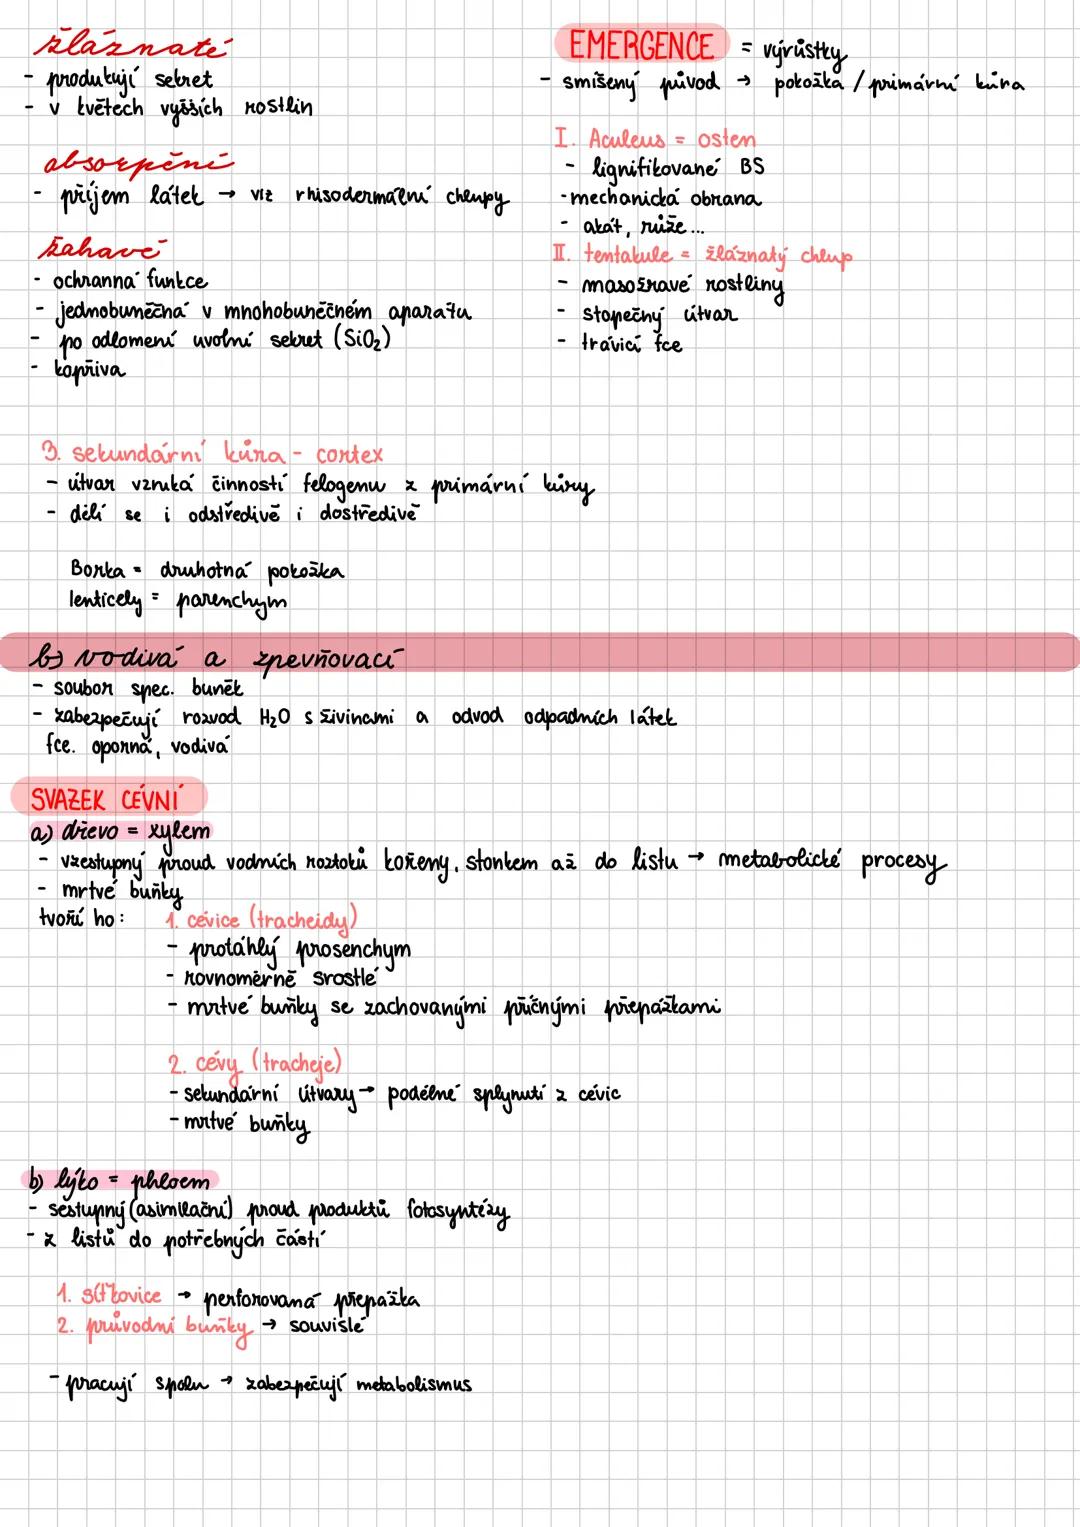 žláznaté
- produkují sekret
- v květech vyšších rostlin
absorpční
- příjem látek → viz rhisodermální chlupy
žahavé
- ochranná funkce
- jednobuněčná v mnohobuněčném aparátu
- po odlomení uvolní sekret (SiO₂)
- kopřiva
EMERGENCE = výrůstky
- smíšený původ → pokožka / primární kůra
I. Aculeus = osten
- lignifikované BS
- mechanická obrana
- akát, růže...
II. tentakule = žláznatý chlup
- masožravé rostliny
- stopečný útvar
- trávicí fce
3. sekundární kůra - cortex
- útvar vzniká činností felogenu z primární kůry
- dělí se i odstředivě i dostředivě
Borka = druhotná pokožka
lenticely = parenchym
b) vodivá a zpevňovací
- soubor spec. buněk
- zabezpečují rozvod H₂O s živinami a odvod odpadních látek
fce. oporná, vodivá
SVAZEK CÉVNÍ
a) dřevo = xylem
- vzestupný proud vodních roztoků kořeny, stonkem až do listu → metabolické procesy
- mrtvé buňky
tvoří ho: 1. cévice (tracheidy)
- protáhlý prosenchym
- rovnoměrně srostlé
- mrtvé buňky se zachovanými příčnými přepážkami
2. cévy (tracheje)
- sekundární útvary → podélné splynutí z cévic
- mrtvé buňky
b) lýko = phloem
- sestupný (asimilační) proud produktů fotosyntézy
- z listů do potřebných částí
1. sítkovice → perforovaná přepážka
2. průvodní buňky → souvislé
- pracují spolu → zabezpečují metabolismus